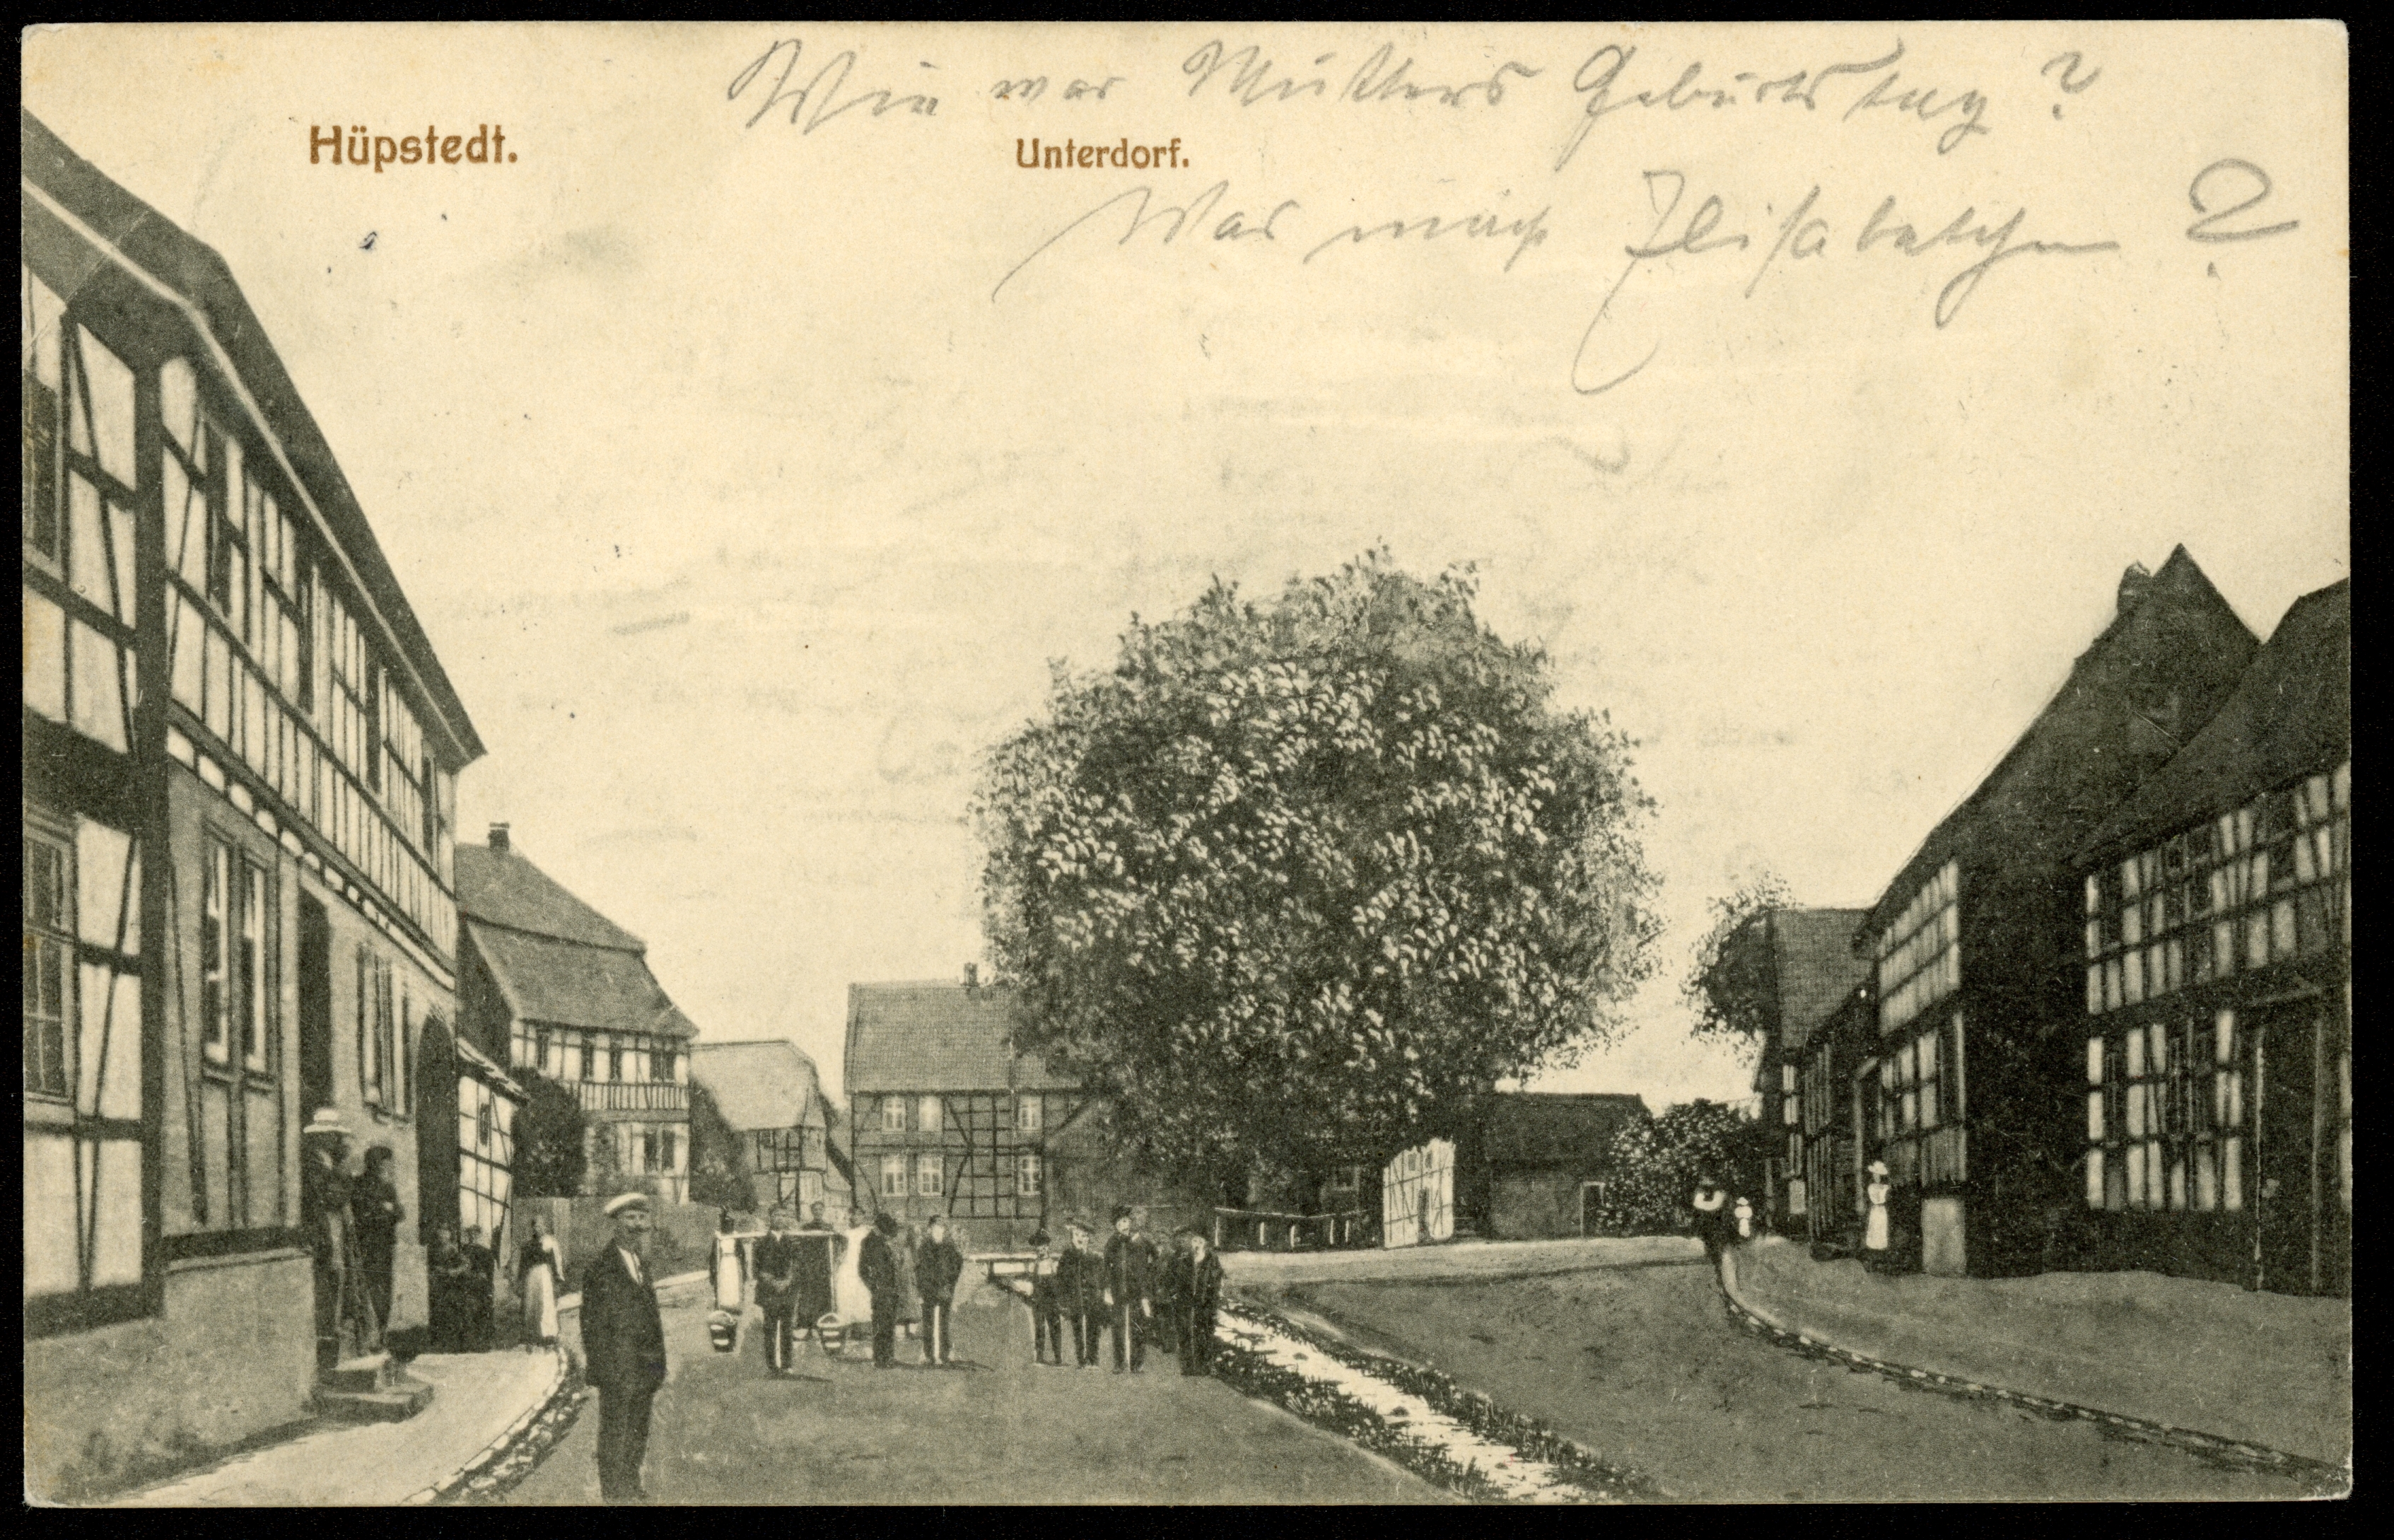 Wie war Mutters Geburtstag?
Hüpstedt.
Unterdorf.
Was mach Elisabethchen?